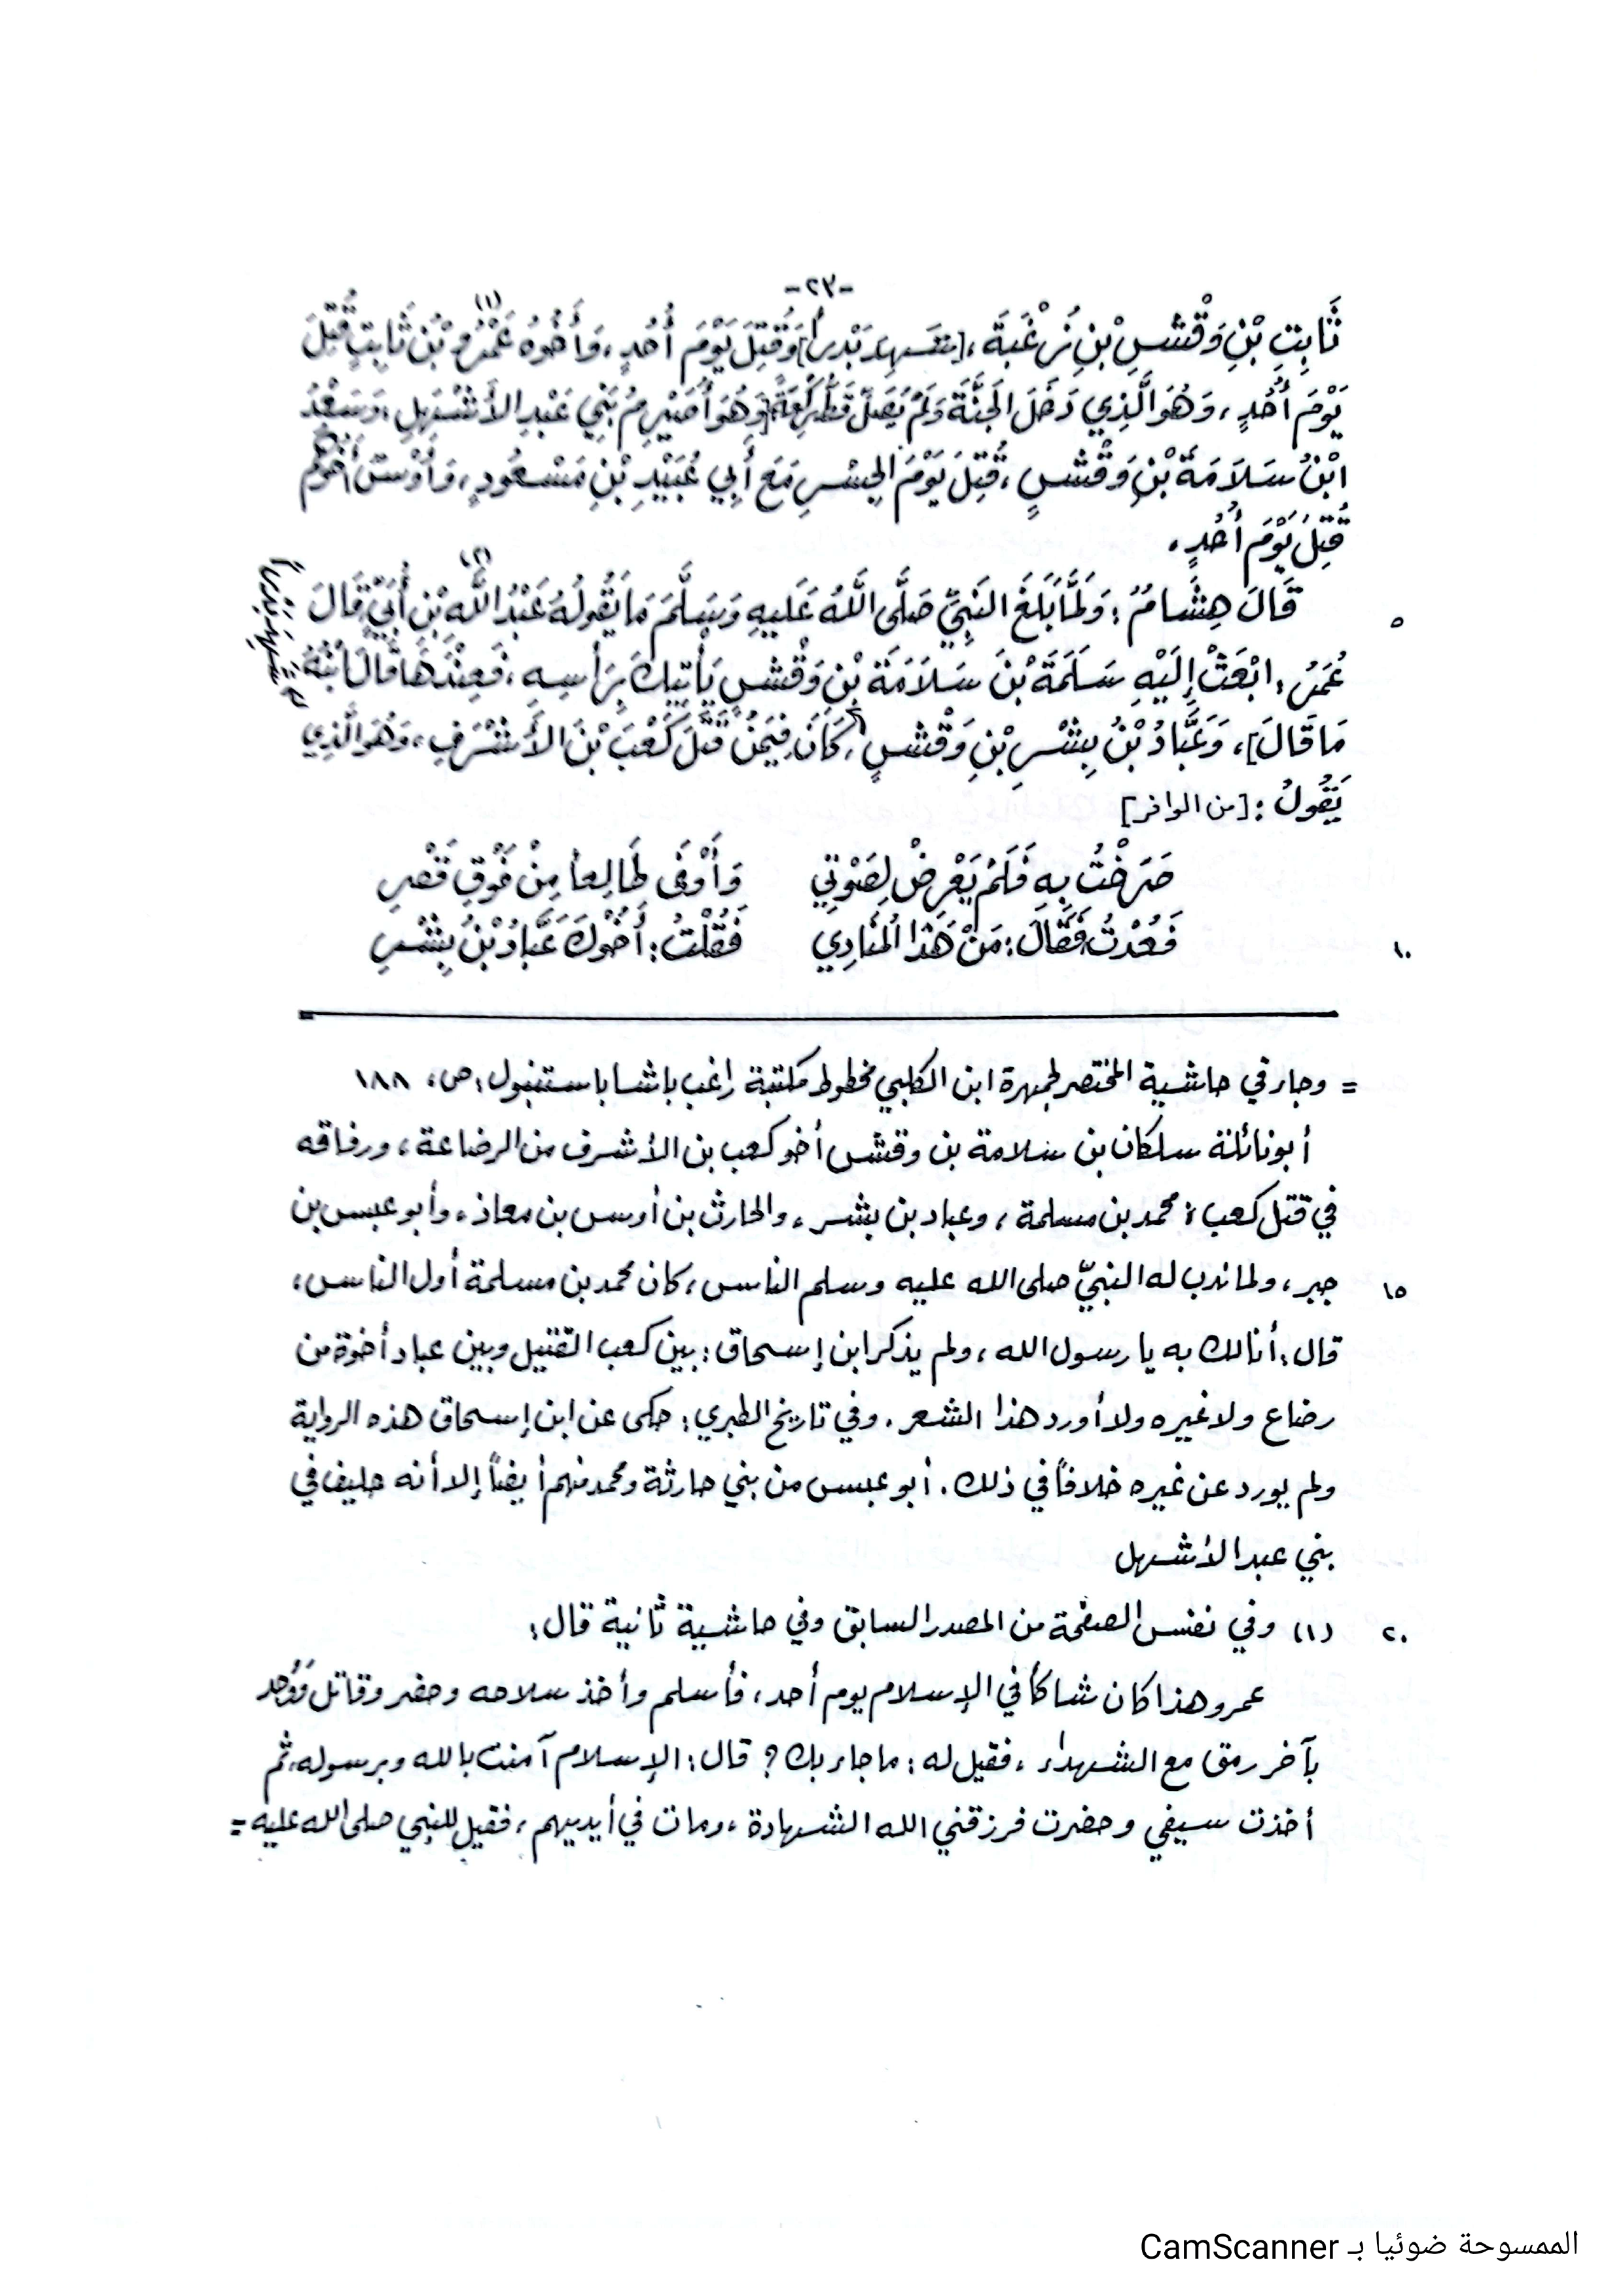 -٢٣-
ثَابِتِ بْنِ وَقْشِ بْنِ زُغْبَةَ، [شَهِدَ بَدْراً] وَقُتِلَ يَوْمَ أُحُدٍ، وَأَخُوهُ عَمْرُو بْنُ ثَابِتٍ (١) قُتِلَ
يَوْمَ أُحُدٍ، وَهُوَ الَّذِي دَخَلَ الجَنَّةَ وَلَمْ يُصَلِّ قَطُّ رَكْعَةً [وَهُوَ أُصَيْرِمُ بَنِي عَبْدِ الأَشْهَلِ، وَسَعْدُ
ابْنُ سَلاَمَةَ بْنِ وَقْشٍ، قُتِلَ يَوْمَ الجِسْرِ مَعَ أَبِي عُبَيْدِ بْنِ مَسْعُودٍ، وَأَوْسٌ أَخُوهُم
قُتِلَ يَوْمَ أُحُدٍ.
٥ قَالَ هِشَامُ: وَلَمَّا بَلَغَ النَّبِيَّ صَلَّى اللَّهُ عَلَيهِ وَسَلَّمَ مَا يَقُولُهُ عَبْدُ اللَّهِ بْنِ أُبَيٍّ (٢) قَالَ
عُمَرُ: ابْعَثْ إِلَيْهِ سَلَمَةَ بْنَ سَلاَمَةَ بْنِ وَقْشٍ يَأْتِيكَ بِرَأْسِهِ، فَعِنْدَهَا قَالَ ابْنُهُ
مَا قَالَ]، وَعَبَّادُ بْنُ بِشْرِ بْنِ وَقْشٍ، كَانَ فِيمَنْ قَتَلَ كَعْبَ بْنَ الأَشْرَفِ، وَهُوَ الَّذِي
شَهِدَ بَدْراً
يَقُولُ: [من الوافر]
صَرَخْتُ بِهِ فَلَمْ يَعْرِضْ لِصَوْتِي وَأَوْفَى طَالِعاً مِنْ فَوْقِ قَصْرِ
١٠ فَعُدْتُ فَقَالَ: مَنْ هَذَا المُنَادِي فَقُلْتُ: أَخُوكَ عَبَّادُ بْنُ بِشْرِ
= وجاء في حاشية المختصر لجمهرة ابن الكلبي مخطوط مكتبة راغب باشا باستنبول: ص، ١٨٨
أبونائلة سلكان بن سلامة بن وقش أخو كعب بن الأشرف من الرضاعة، ورفاقه
في قتل كعب: محمد بن مسلمة، وعباد بن بشر، والحارث بن أوس بن معاذ، وأبو عبس بن
١٥ جبر، ولما ندب له النبيّ صلى الله عليه وسلم الناس، كان محمد بن مسلمة أول الناس،
قال: أنا لك به يا رسول الله، ولم يذكر ابن إسحاق: بين كعب القتيل وبين عباد أخوة من
رضاع ولا غيره ولا أورد هذا الشعر. وفي تاريخ الطبري: حكى عن ابن إسحاق هذه الرواية
ولم يورد عن غيره خلافاً في ذلك. أبو عبس من بني حارثة ومحمد منهم أيضاً إلا أنه حليف في
بني عبد الأشهل
٢٠ (١) وفي نفس الصفحة من المصدر السابق وفي حاشية ثانية قال:
عمرو هذا كان شاكاً في الإسلام يوم أحد، فأسلم وأخذ سلاحه وحضر وقاتل فَوُجد
بآخر رمق مع الشهداء، فقيل له: ما جاء بك؟ قال: الإسلام آمنت بالله وبرسوله، ثم
أخذت سيفي وحضرت فرزقني الله الشهادة، ومات في أيديهم، فقيل للنبي صلى الله عليه =
الممسوحة ضوئيا بـ CamScanner